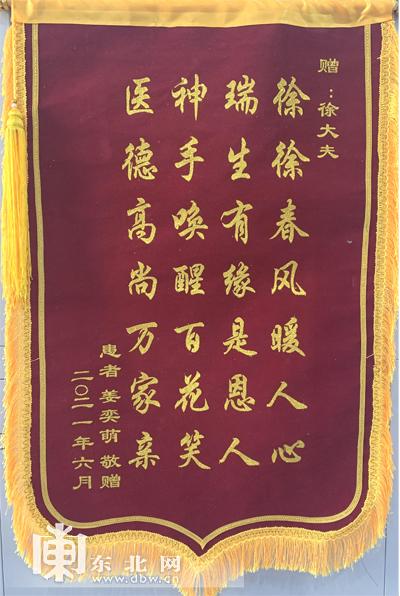 赠：徐大夫
徐徐春风暖人心
瑞生有缘是恩人
神手唤醒百花笑
医德高尚万家亲
患者 姜奕萌 敬赠
二〇二一年六月
东北网
www.dbw.cn